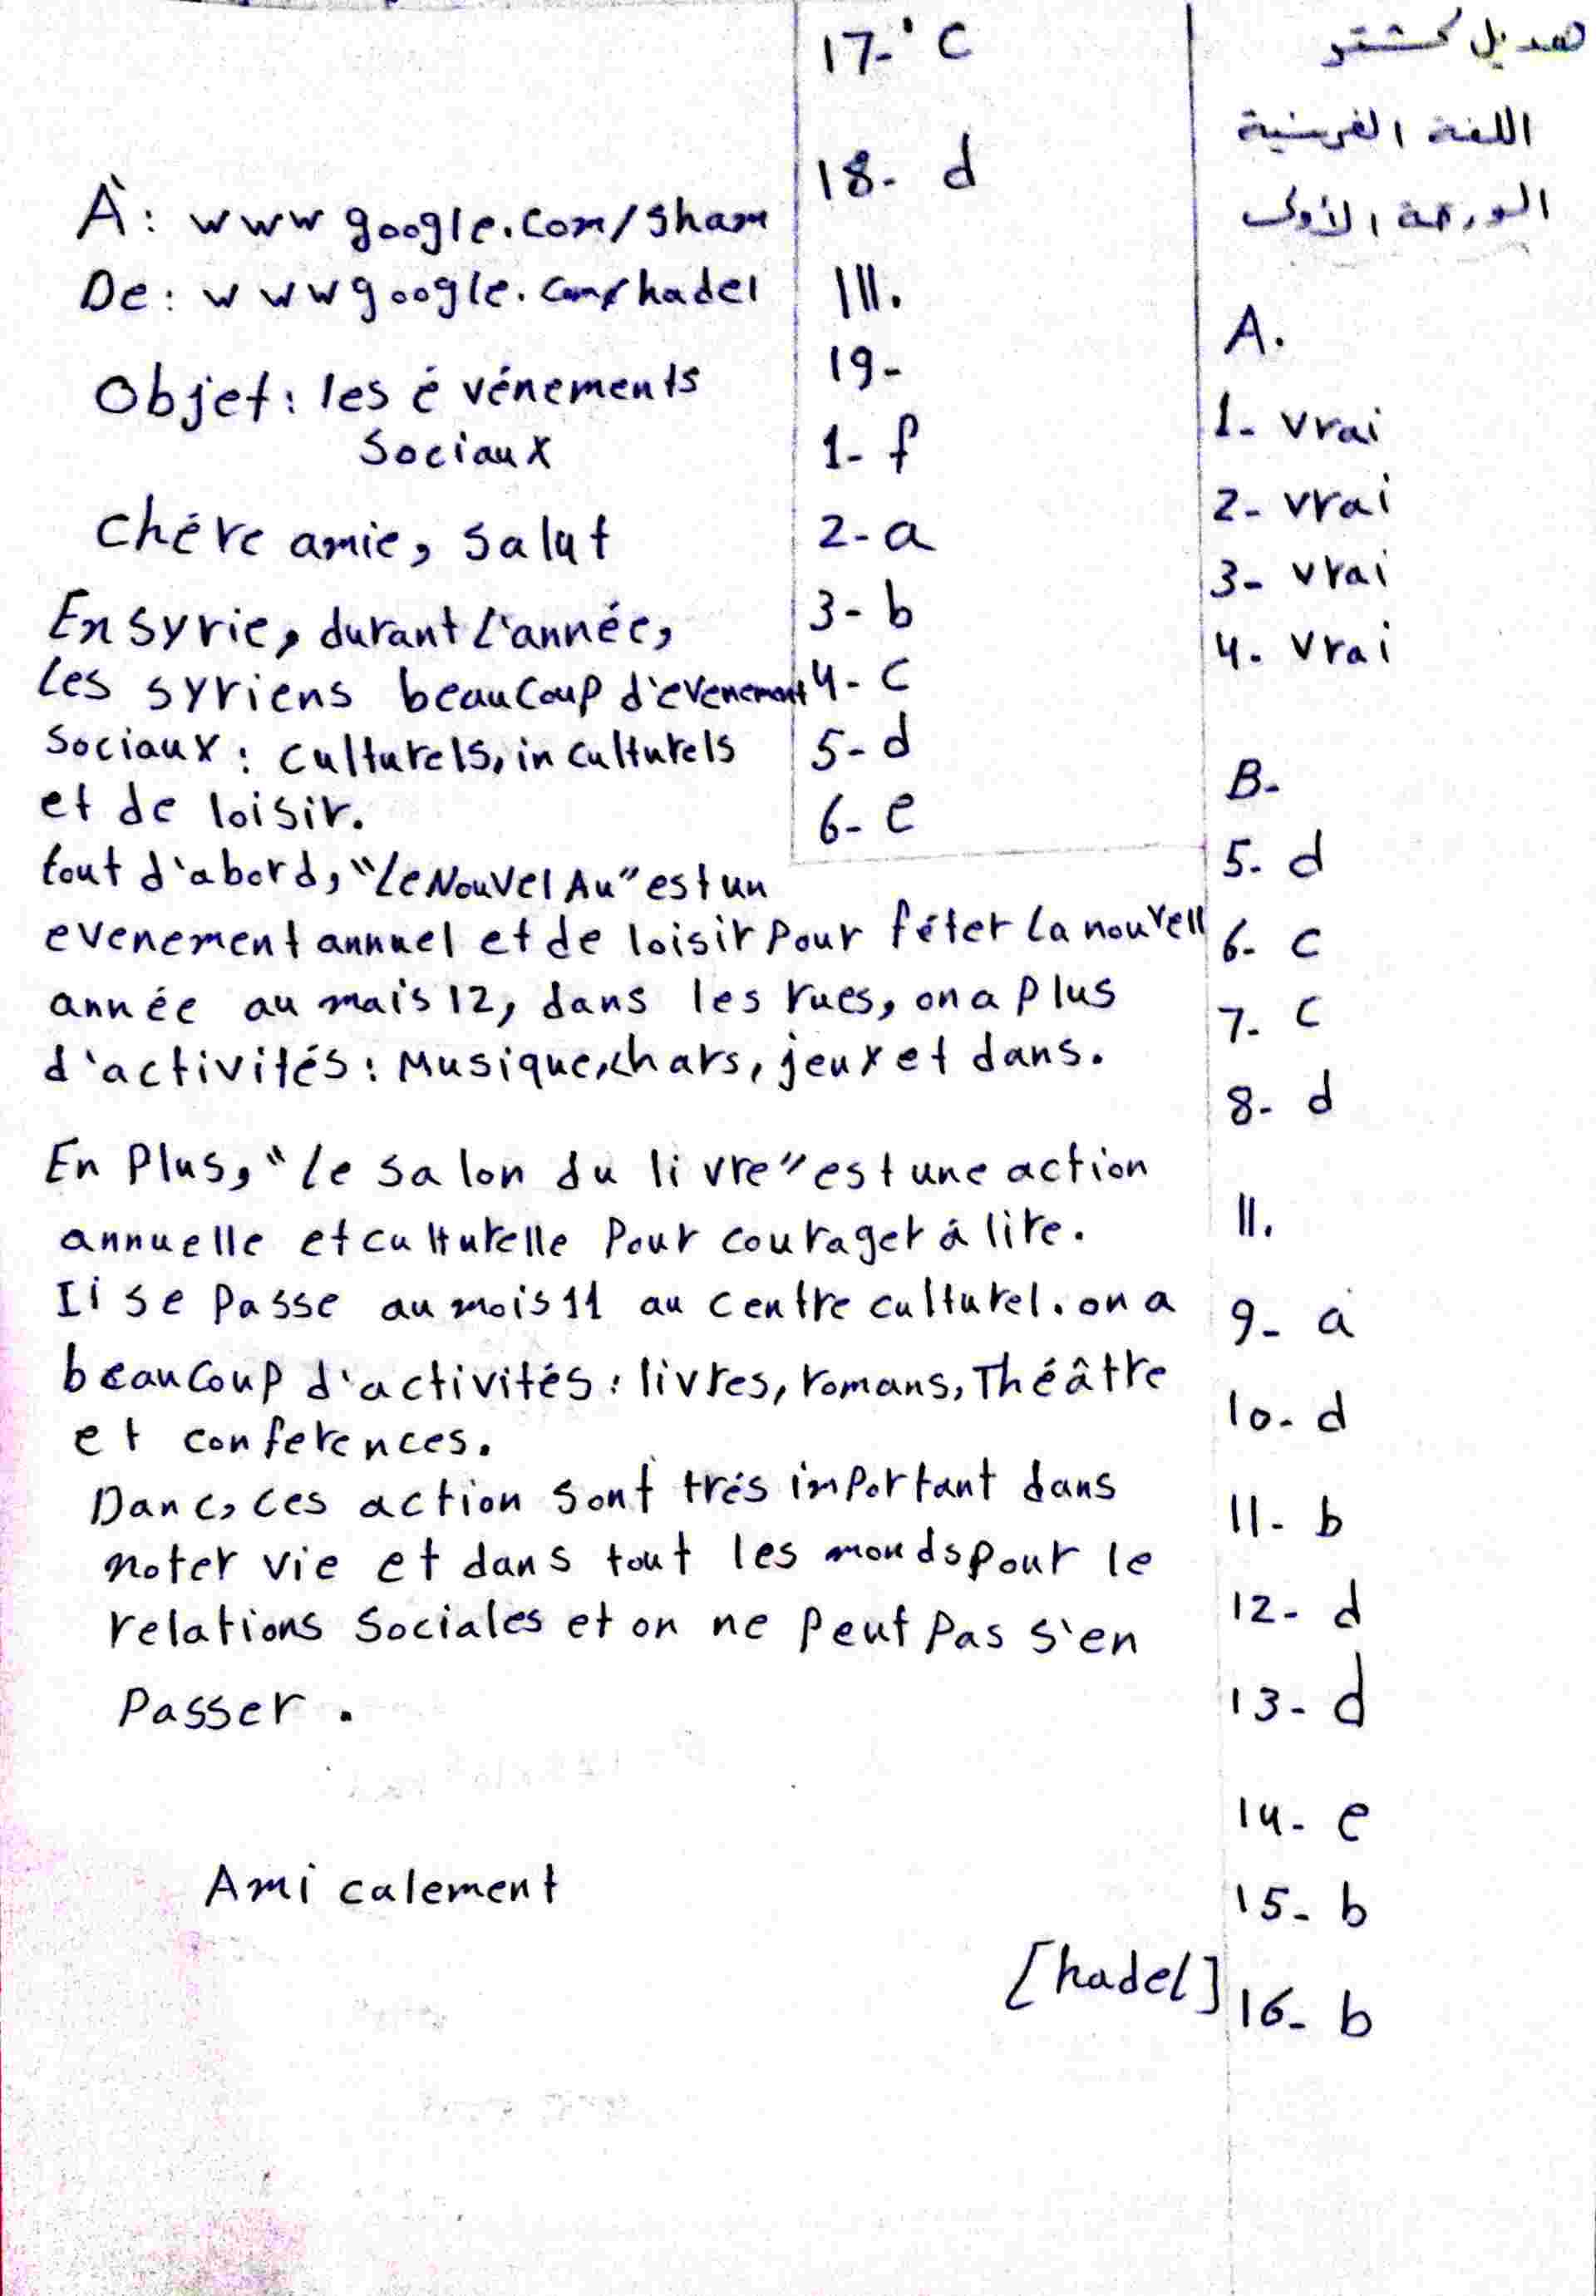 هديل كشتو
اللغة الفرنسية
الورقة الأولى
A.
1- vrai
2- vrai
3- vrai
4. vrai
B-
5. d
6- c
7- c
8- d
II.
9- a
10- d
11- b
12- d
13- d
14- e
15- b
16- b
17- c
18- d
III.
19-
1- f
2- a
3- b
4- c
5- d
6- e
À: www google.com/sham
De: www google.com/hadel
Objet: les événements
sociaux
chère amie, salut
En syrie, durant l'année,
les syriens beaucoup d'evenement
sociaux: culturels, in culturels
et de loisir.
tout d'abord, "Le Nouvel Au" est un
evenement annuel et de loisir pour féter la nouvell
année au mais 12, dans les rues, on a plus
d'activités: Musique, chars, jeux et dans.
En Plus, "le salon du livre" est une action
annuelle et culturelle Pour courager à lire.
Il se passe au mois 11 au centre culturel. on a
beaucoup d'activités: livres, romans, Théâtre
et conferences.
Danc, ces action sont trés important dans
noter vie et dans tout les monds pour le
relations sociales et on ne peut pas s'en
passer.
Amicalement
[hadel]